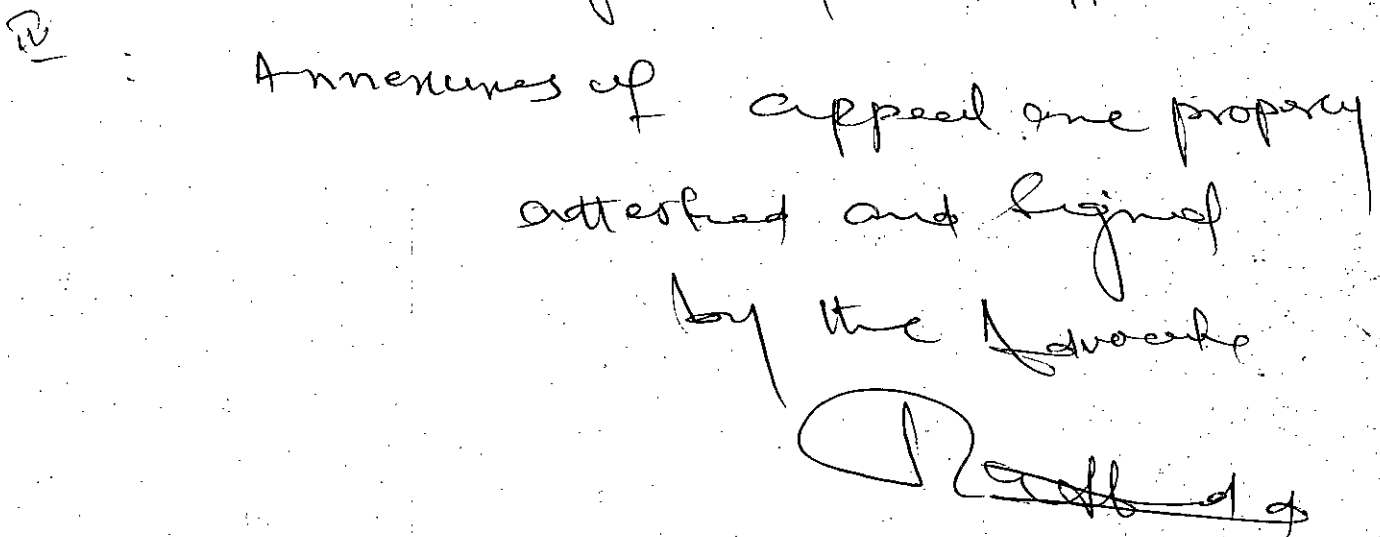 IV : Annexures of appeal are properly
attested and signed
by the Advocate